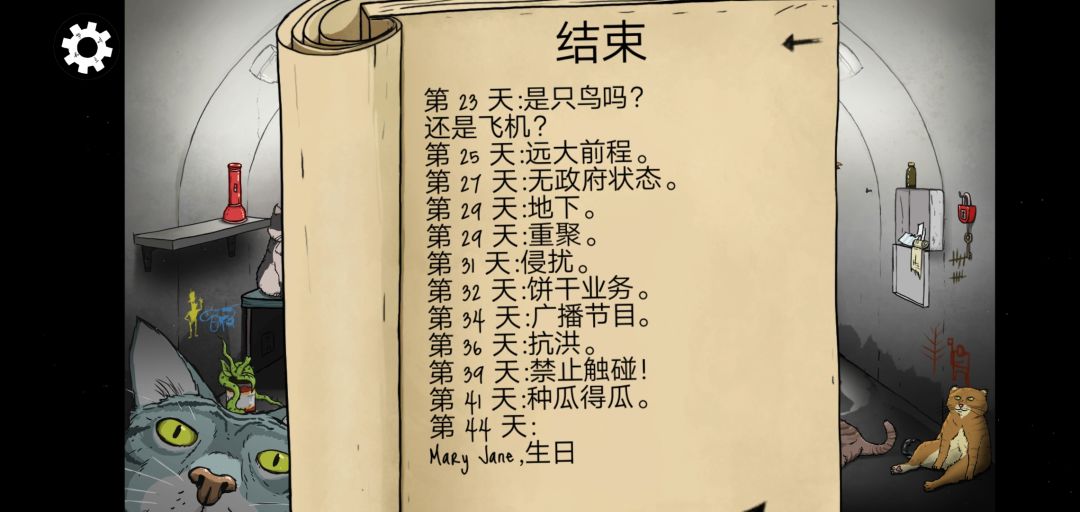 结束
第 23 天:是只鸟吗？
还是飞机？
第 25 天:远大前程。
第 27 天:无政府状态。
第 29 天:地下。
第 29 天:重聚。
第 31 天:侵扰。
第 32 天:饼干业务。
第 34 天:广播节目。
第 36 天:抗洪。
第 39 天:禁止触碰！
第 41 天:种瓜得瓜。
第 44 天:
Mary Jane,生日